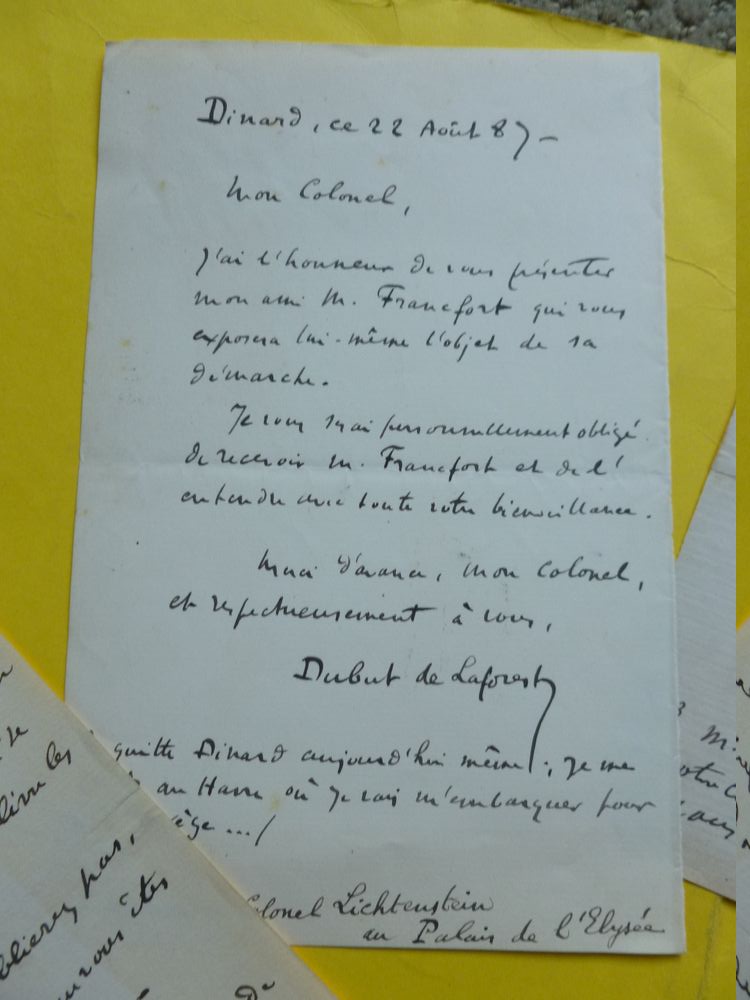 Dinard, ce 22 Août 87 -
Mon Colonel,
J'ai l'honneur de vous présenter
mon ami M. Francfort qui vous
exposera lui-même l'objet de sa
démarche.
Je vous serai personnellement obligé
de recevoir M. Francfort et de l'
entendre avec toute votre bienveillance.
Merci d'avance, mon Colonel,
et respectueusement à vous,
Dubut de Laforest
quitte Dinard aujourd'hui même ; je me
au Havre où je vais m'embarquer pour
ège .../
Colonel Lichtenstein
au Palais de l'Elysée
livre les
oublierez pas,
vous êtes
de